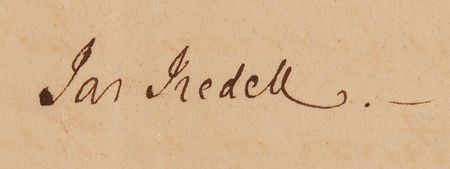 Jas Iredell. —